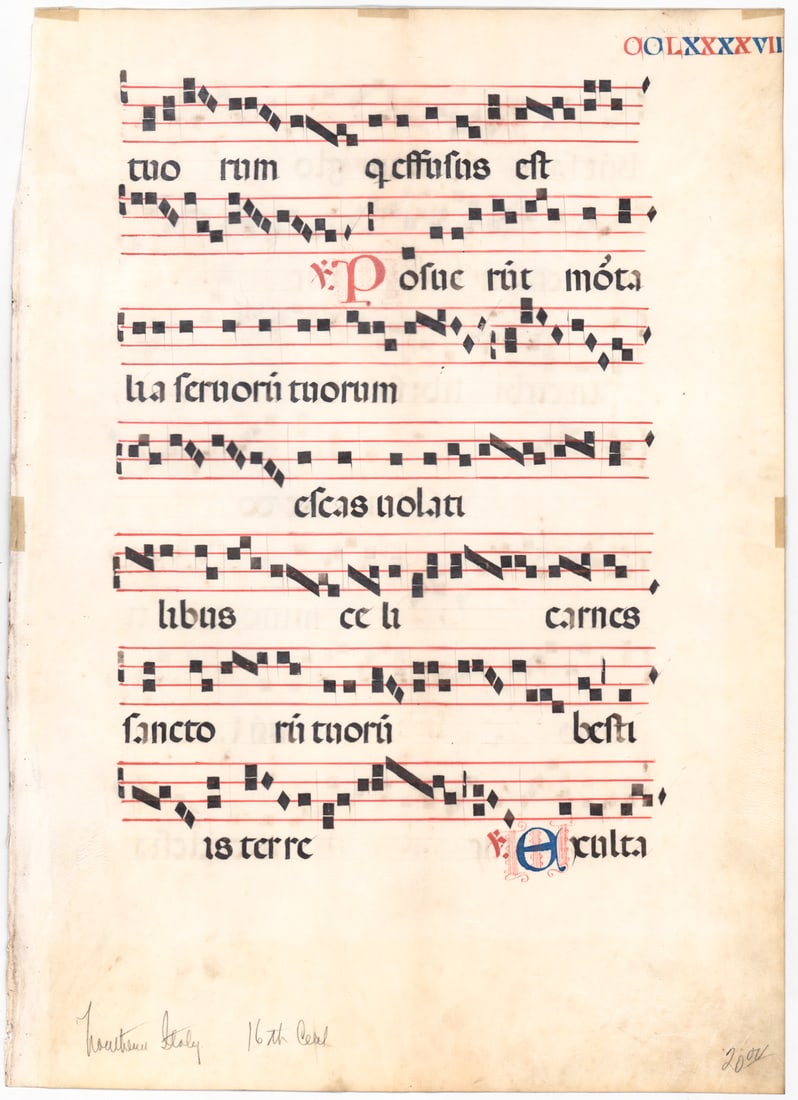 CCLXXXXVII
tuo rum q effusus est
℣. P osue rūt mōta
lia seruorū tuorum
escas uolati
libus ce li carnes
sancto rū tuorū besti
is terre ℣. Exulta
Northern Italy 16th Cent
20.00